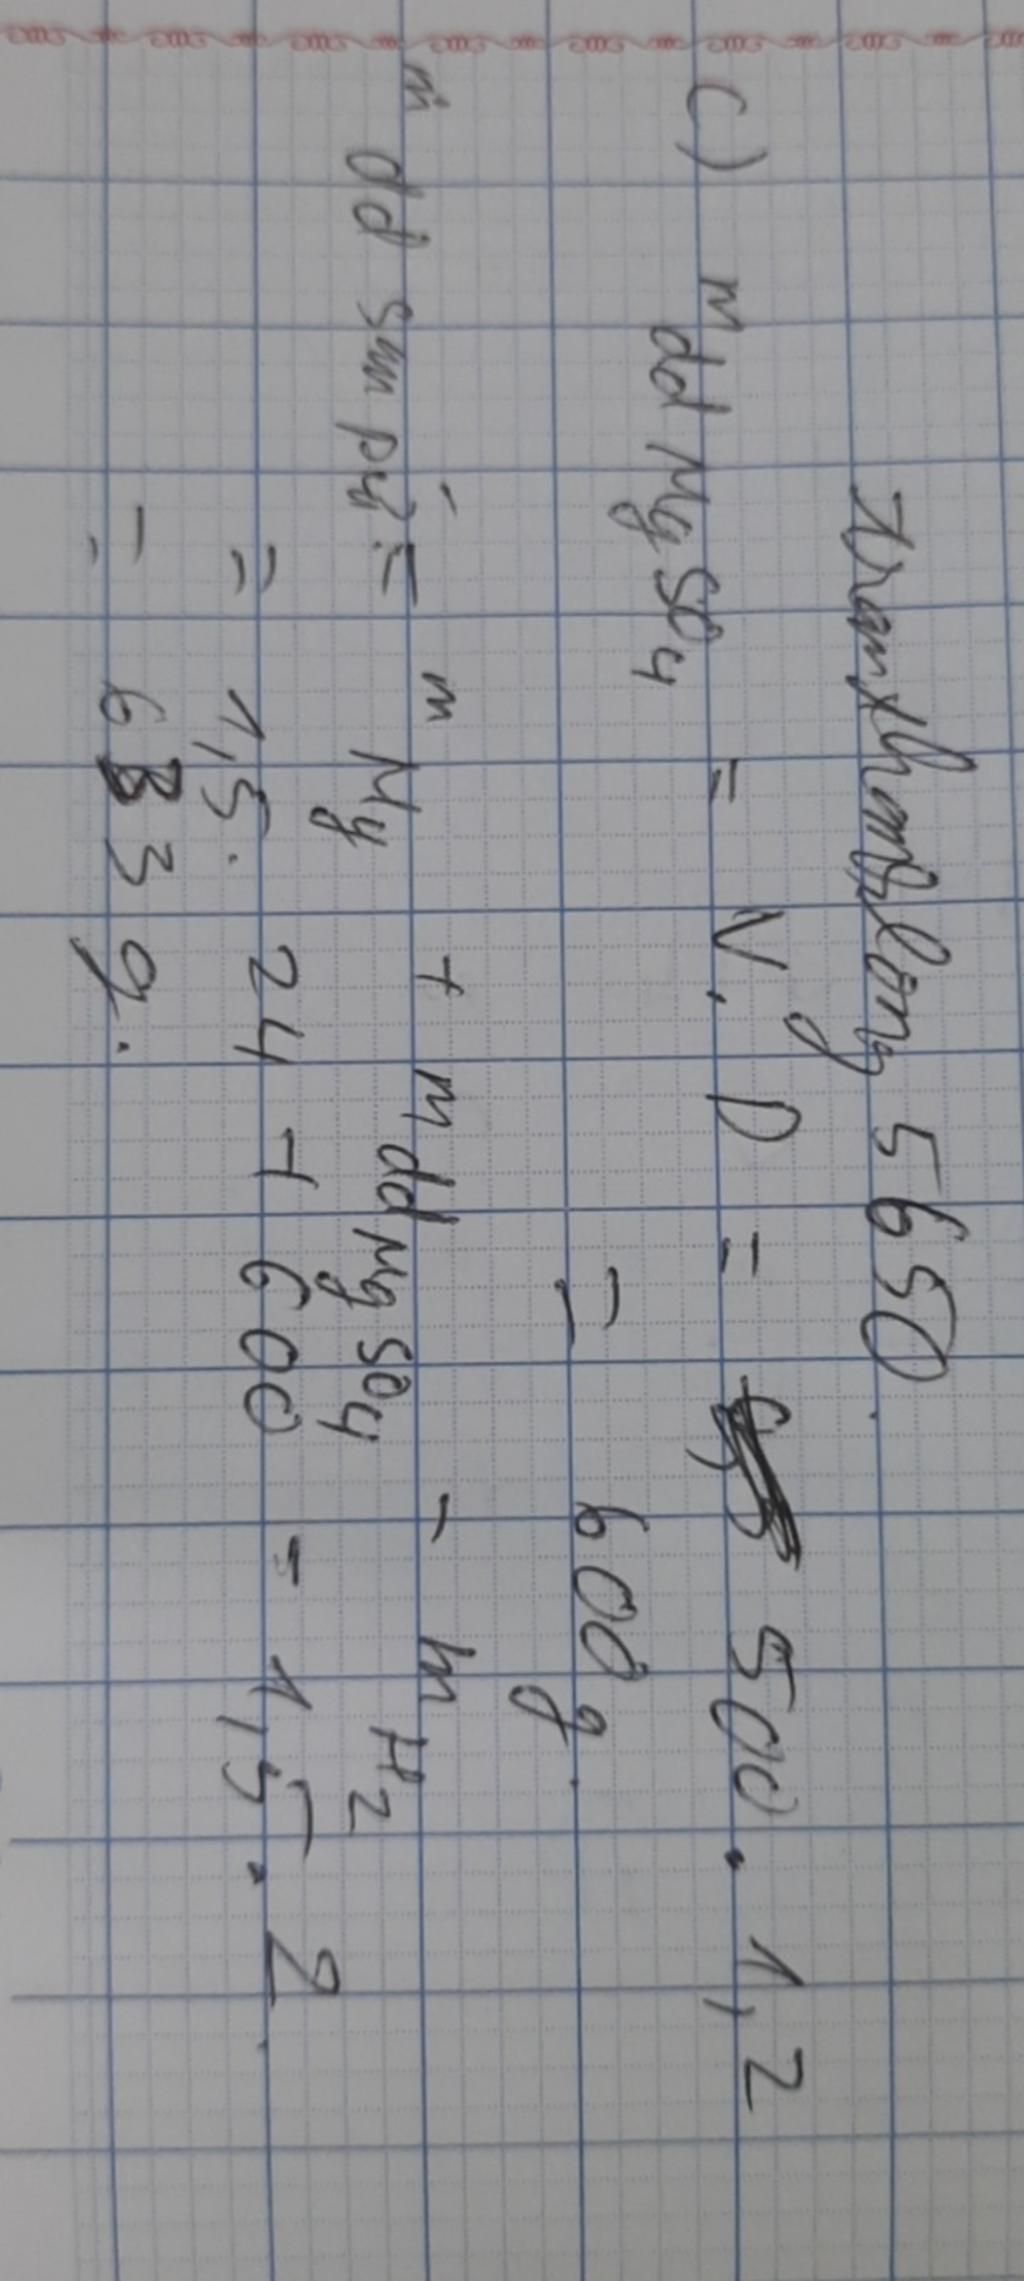 tranthimailong 5650.
c) m dd MgSO4 = V.D = 500. 1,2
= 600 g.
m dd sau pứ = m Mg + m dd MgSO4 - m H2
= 1,5. 24 + 600 - 1,5. 2
= 633 g.